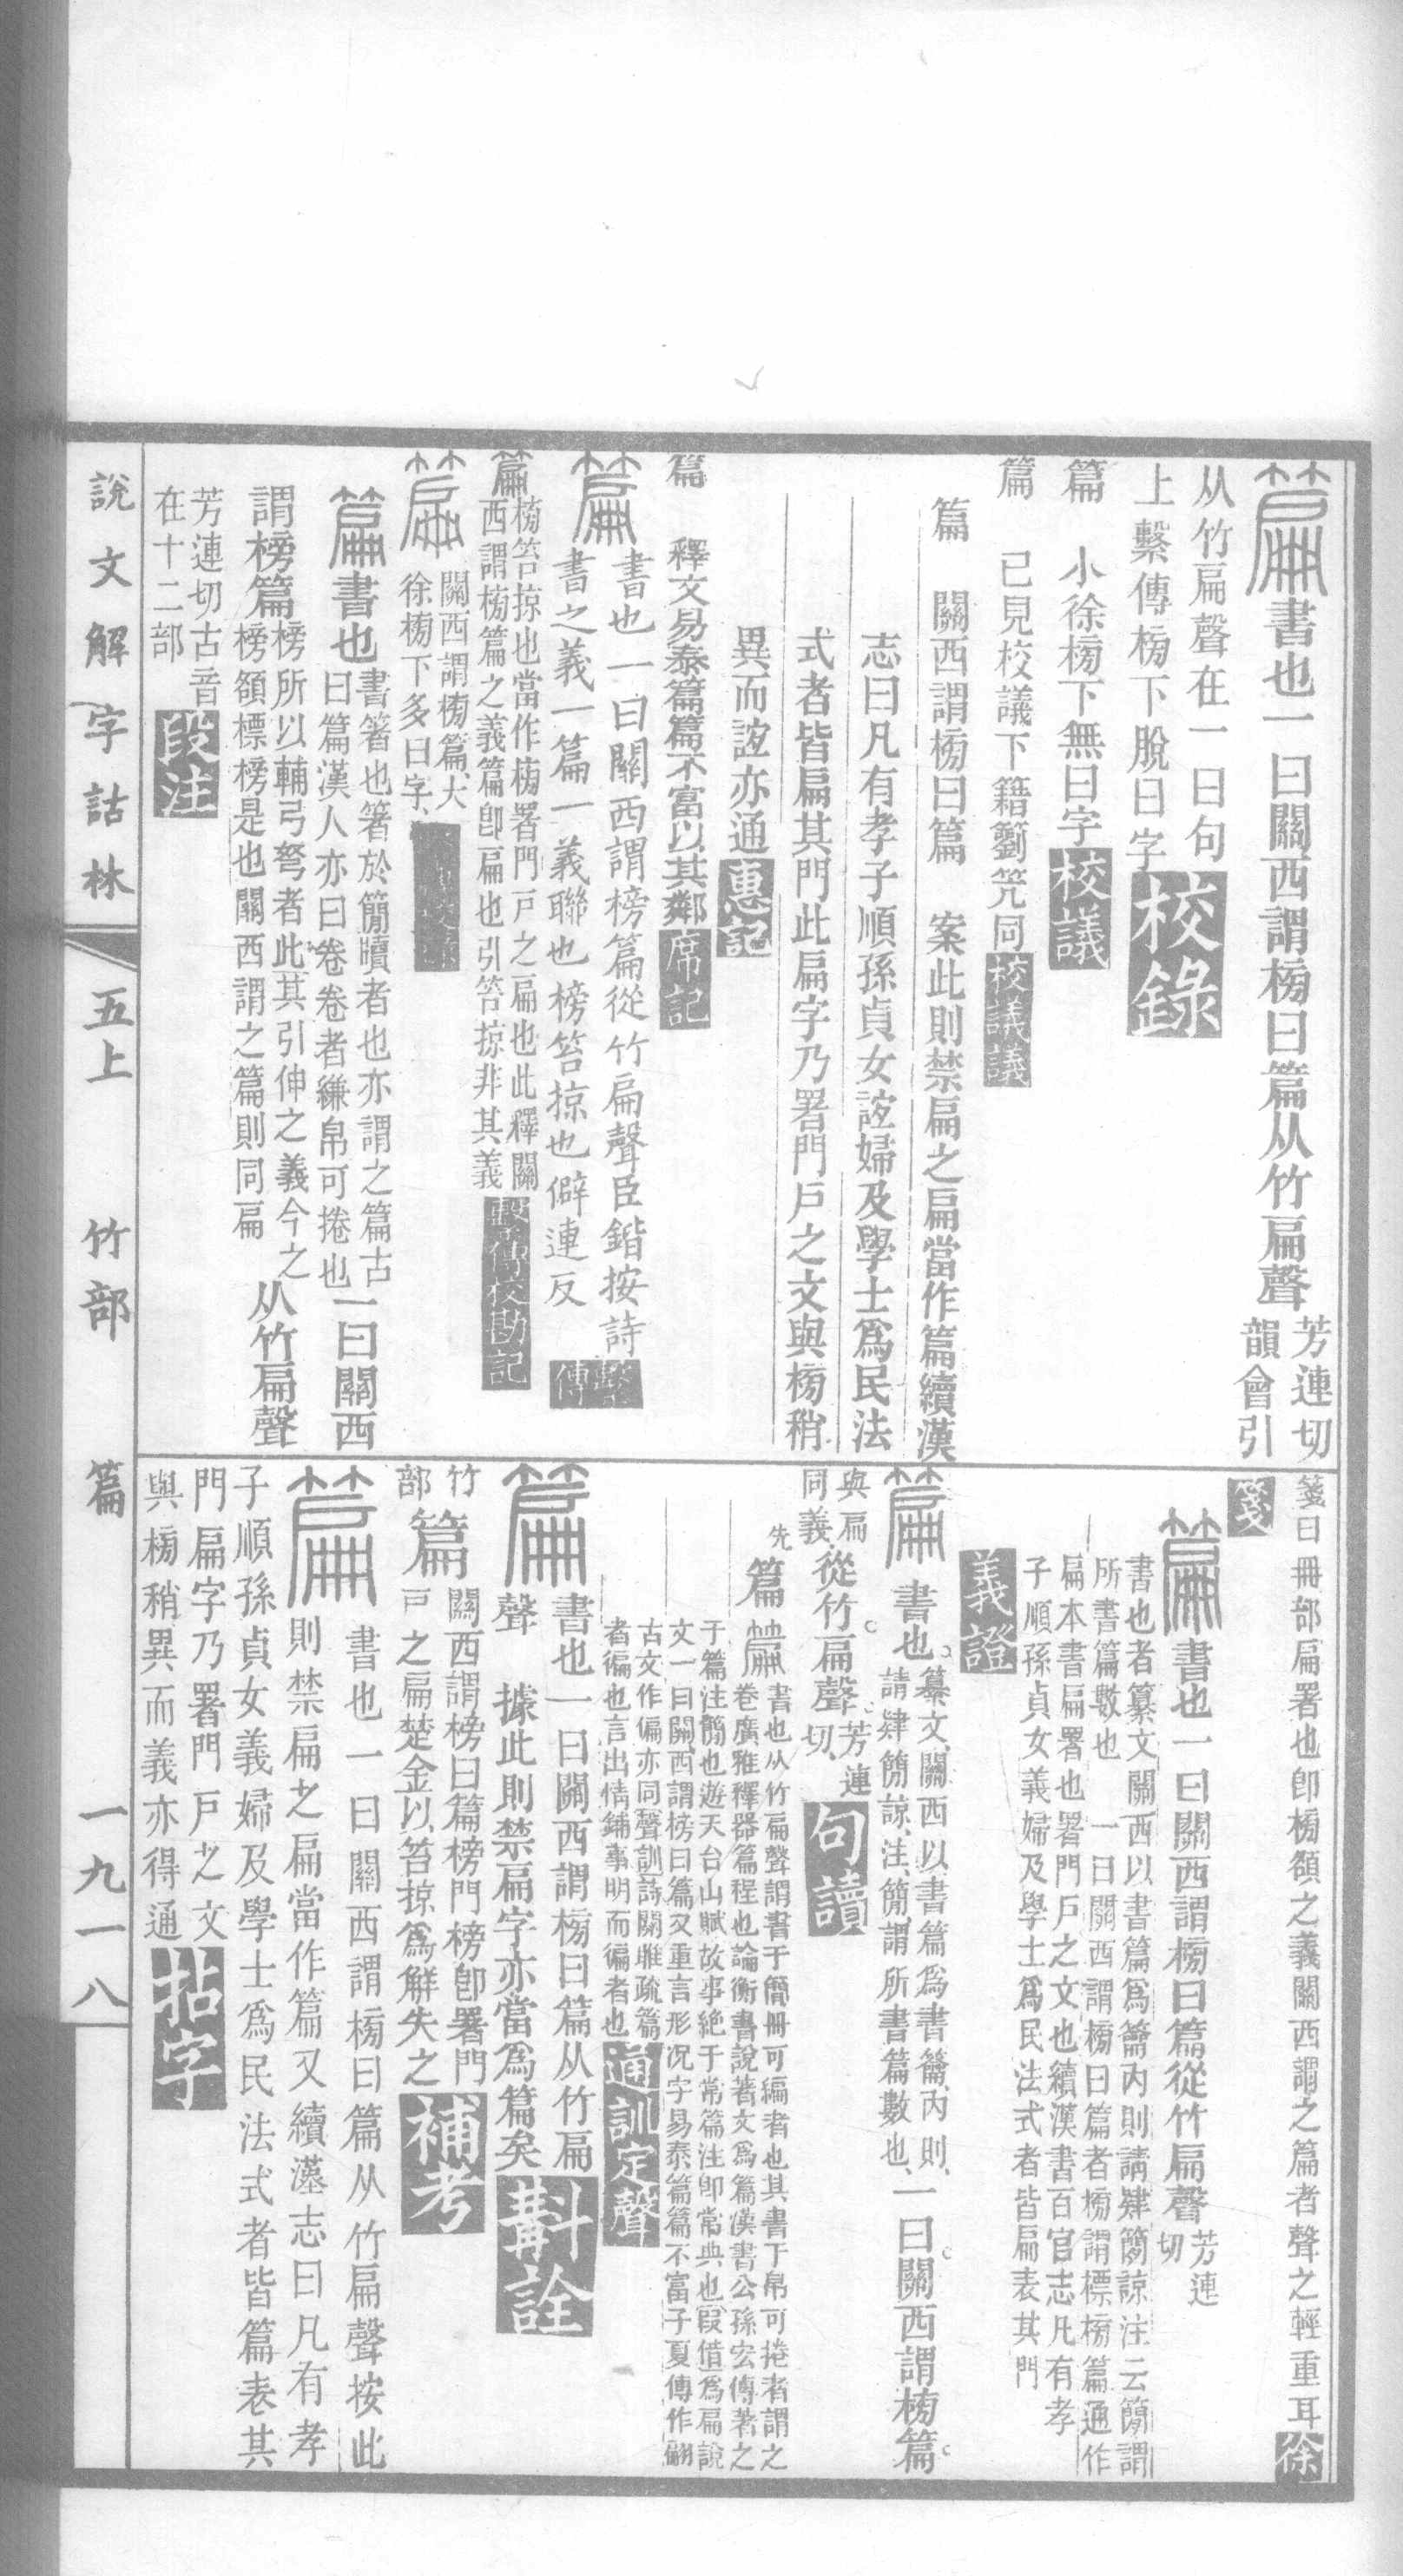 篇書也一曰關西謂榜曰篇从竹扁聲芳連切
韻會引
从竹扁聲在一曰句
上繫傳榜下脫曰字校錄
篇 小徐榜下無曰字校議
篇 已見校議下籍籣笐同校議議
篇 關西謂榜曰篇 案此則禁扁之扁當作篇續漢
志曰凡有孝子順孫貞女誼婦及學士爲民法
式者皆扁其門此扁字乃署門戶之文與榜稍
異而誼亦通惠記
篇 釋文易泰篇篇不富以其鄰席記
篇書也一曰關西謂榜篇從竹扁聲臣鍇按詩
書之義一篇一義聯也榜笞掠也僻連反繫傳
篇榜笞掠也當作榜署門戶之扁也此釋關
西謂榜篇之義篇卽扁也引笞掠非其義繫傳校勘記
篇關西謂榜篇、大
徐榜下多曰字、
篇書也書箸也箸於簡牘者也亦謂之篇古
曰篇漢人亦曰卷卷者縑帛可捲也一曰關西
謂榜篇榜所以輔弓弩者此其引伸之義今之
榜領標榜是也關西謂之篇則同扁从竹扁聲
芳連切古音
在十二部段注
箋曰冊部扁署也卽榜領之義關西謂之篇者聲之輕重耳徐
箋
篇書也一曰關西謂榜曰篇從竹扁聲芳連
切
書也者纂文關西以書篇爲籥內則請肄簡諒注云簡謂
所書篇數也 一曰關西謂榜曰篇者榜謂標榜篇通作
扁本書扁署也署門戶之文也續漢書百官志凡有孝
子順孫貞女義婦及學士爲民法式者皆扁表其門
義證
篇書也。纂文、關西以書篇爲書籥、內則、
請肄簡諒、注、簡謂所書篇數也、一曰關西謂榜篇。
與扁
同義、從竹。扁聲。芳連
切、句讀
先篇書也从竹扁聲謂書于簡冊可編者也其書于帛可捲者謂之
卷廣雅釋器篇程也論衡書說著文爲篇漢書公孫宏傳著之
于篇注簡也遊天台山賦故事絶于常篇注卽常典也叚借爲扁說
文一曰關西謂榜曰篇又重言形況字易泰篇篇不富子夏傳作翩
古文作偏亦同聲訓詩關雎疏篇
者徧也言出情鋪事明而徧者也通訓定聲
篇書也一曰關西謂榜曰篇从竹扁
聲 據此則禁扁字亦當爲篇矣斠詮
竹
部篇關西謂榜曰篇榜門榜卽署門
戶之扁楚金以笞掠爲解失之補考
篇書也一曰關西謂榜曰篇从竹扁聲按此
則禁扁之扁當作篇又續漢志曰凡有孝
子順孫貞女義婦及學士爲民法式者皆篇表其
門扁字乃署門戶之文
與榜稍異而義亦得通拈字
說文解字詁林 五上 竹部 篇 一九一八